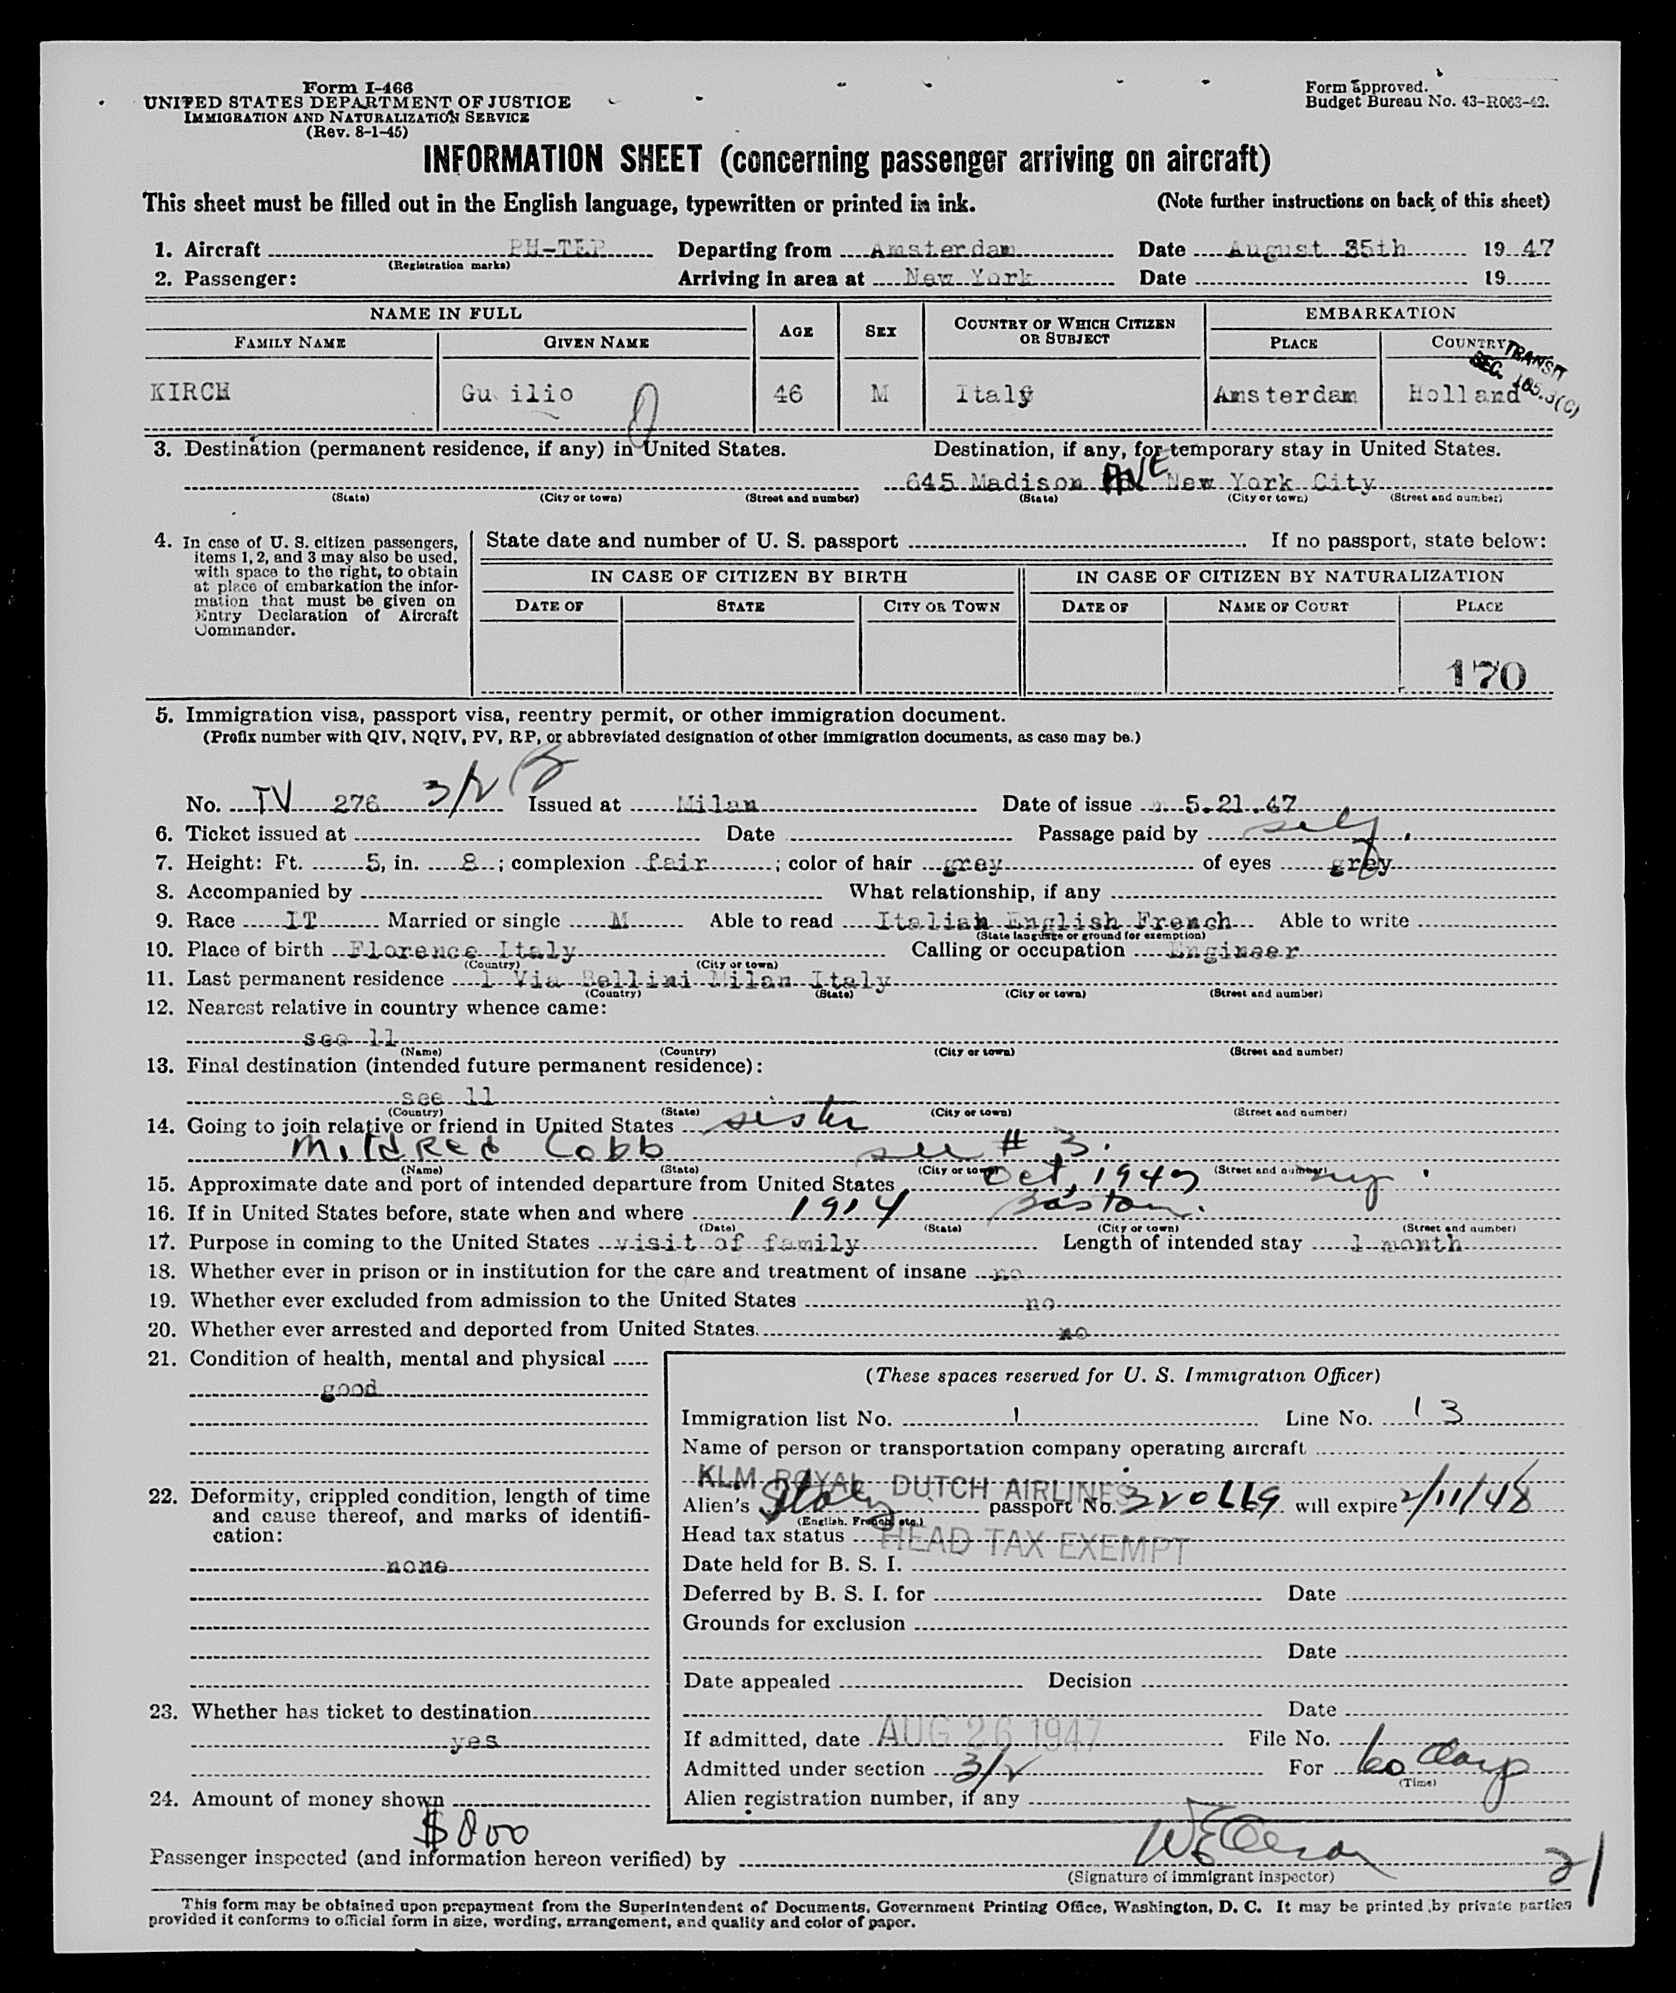 Form I-466
UNITED STATES DEPARTMENT OF JUSTICE
IMMIGRATION AND NATURALIZATION SERVICE
(Rev. 8-1-45)
Form approved.
Budget Bureau No. 43-R063-42.
INFORMATION SHEET (concerning passenger arriving on aircraft)
This sheet must be filled out in the English language, typewritten or printed in ink. (Note further instructions on back of this sheet)
1. Aircraft PH-TEP Departing from Amsterdam Date August 25th 19 47
(Registration marks)
2. Passenger: Arriving in area at New York Date 19
NAME IN FULL AGE SEX COUNTRY OF WHICH CITIZEN OR SUBJECT EMBARKATION
FAMILY NAME GIVEN NAME PLACE COUNTRY
TRANSIT
SEC. 165.3(C)
KIRCH Gu ilio 46 M Italy Amsterdam Holland
3. Destination (permanent residence, if any) in United States. Destination, if any, for temporary stay in United States.
645 Madison AVE New York City
(State) (City or town) (Street and number) (State) (City or town) (Street and number)
4. In case of U. S. citizen passengers, items 1, 2, and 3 may also be used, with space to the right, to obtain at place of embarkation the information that must be given on Entry Declaration of Aircraft Commander.
State date and number of U. S. passport If no passport, state below:
IN CASE OF CITIZEN BY BIRTH IN CASE OF CITIZEN BY NATURALIZATION
DATE OF STATE CITY OR TOWN DATE OF NAME OF COURT PLACE
170
5. Immigration visa, passport visa, reentry permit, or other immigration document.
(Prefix number with QIV, NQIV, PV, RP, or abbreviated designation of other immigration documents, as case may be.)
No. TV 276 3/2 Issued at Milan Date of issue 5.21.47
6. Ticket issued at Date Passage paid by self.
7. Height: Ft. 5, in. 8; complexion fair; color of hair grey of eyes grey
8. Accompanied by What relationship, if any
9. Race IT Married or single M Able to read Italian English French Able to write
(State language or ground for exemption)
10. Place of birth Florence Italy Calling or occupation Engineer
(Country) (City or town)
11. Last permanent residence 1 Via Bellini Milan Italy
(Country) (State) (City or town) (Street and number)
12. Nearest relative in country whence came:
see 11
(Name) (Country) (City or town) (Street and number)
13. Final destination (intended future permanent residence):
see 11
(Country) (State) (City or town) (Street and number)
14. Going to join relative or friend in United States sister
Mildred Cobb see # 3.
(Name) (State) (City or town) (Street and number)
15. Approximate date and port of intended departure from United States Oct, 1947 ny.
16. If in United States before, state when and where 1914 Boston.
(Date) (State) (City or town) (Street and number)
17. Purpose in coming to the United States visit of family Length of intended stay 1 month
18. Whether ever in prison or in institution for the care and treatment of insane no
19. Whether ever excluded from admission to the United States no
20. Whether ever arrested and deported from United States. no
21. Condition of health, mental and physical
good
22. Deformity, crippled condition, length of time and cause thereof, and marks of identification:
none
23. Whether has ticket to destination
yes
24. Amount of money shown
$800
(These spaces reserved for U. S. Immigration Officer)
Immigration list No. 1 Line No. 13
Name of person or transportation company operating aircraft
KLM ROYAL DUTCH AIRLINES
Alien's Italy passport No. 320669 will expire 2/11/48
(English, French, etc.)
Head tax status HEAD TAX EXEMPT
Date held for B. S. I.
Deferred by B. S. I. for Date
Grounds for exclusion
Date
Date appealed Decision
Date
If admitted, date AUG 26 1947 File No.
Admitted under section 3/2 For 60 days
(Time)
Alien registration number, if any
Passenger inspected (and information hereon verified) by
(Signature of immigrant inspector)
21
This form may be obtained upon prepayment from the Superintendent of Documents, Government Printing Office, Washington, D. C. It may be printed by private parties
provided it conforms to official form in size, wording, arrangement, and quality and color of paper.